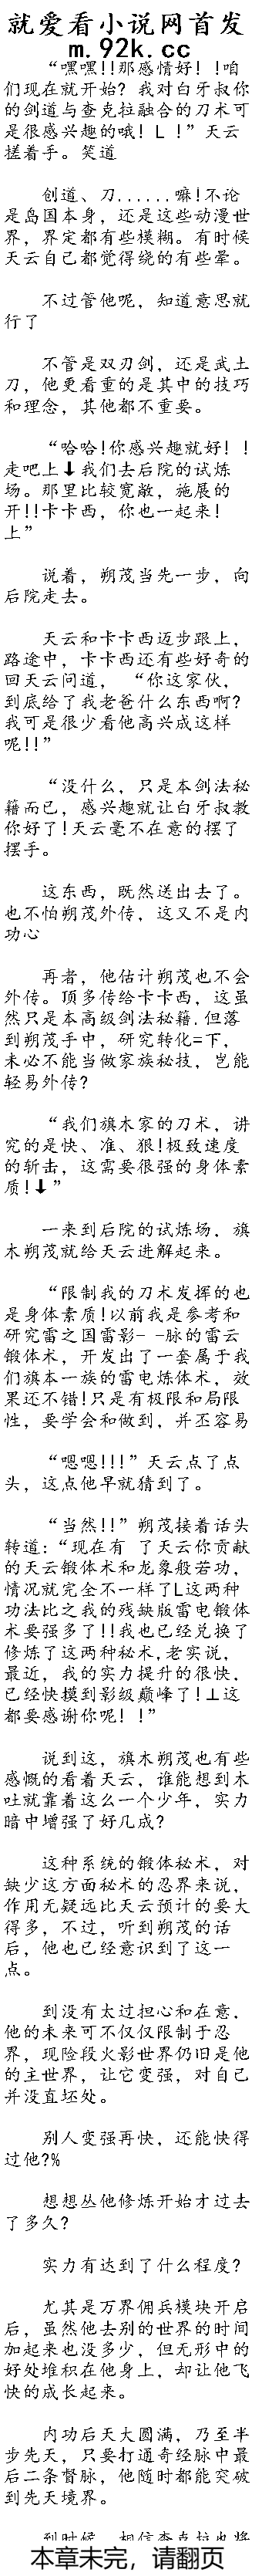 就爱看小说网首发
m.92k.cc
“嘿嘿!!那感情好! !咱
们现在就开始? 我对白牙叔你
的剑道与查克拉融合的刀术可
是很感兴趣的哦! L !”天云
搓着手。笑道
创道、刀......嘛!不论
是岛国本身，还是这些动漫世
界，界定都有些模糊。有时候
天云自己都觉得绕的有些晕。
不过管他呢，知道意思就
行了
不管是双刃剑，还是武土
刀，他更看重的是其中的技巧
和理念，其他都不重要。
“哈哈!你感兴趣就好! !
走吧上⬇我们去后院的试炼
场。那里比较宽敞，施展的
开!!卡卡西，你也一起来!
上”
说着，朔茂当先一步，向
后院走去。
天云和卡卡西迈步跟上，
路途中，卡卡西还有些好奇的
回天云问道， “你这家伙，
到底给了我老爸什么东西啊?
我可是很少看他高兴成这样
呢!!”
“没什么，只是本剑法秘
籍而已，感兴趣就让白牙叔教
你好了!天云毫不在意的摆了
摆手。
这东西，既然送出去了。
也不怕朔茂外传，这又不是内
功心
再者，他估计朔茂也不会
外传。顶多传给卡卡西，这虽
然只是本高级剑法秘籍.但落
到朔茂手中，研究转化=下，
未必不能当做家族秘技，岂能
轻易外传?
“我们旗木家的刀术，讲
究的是快、准、狠!极致速度
的斩击，这需要很强的身体素
质!⬇”
一来到后院的试炼场，旗
木朔茂就给天云进解起来。
“限制我的刀术发挥的也
是身体素质!以前我是参考和
研究雷之国雷影- -脉的雷云
锻体术，开发出了一套属于我
们旗本一族的雷电炼体术，效
果还不错!只是有极限和局限
性，要学会和做到，并丕容易
“嗯嗯!!!”天云点了点
头，这点他早就猜到了。
“当然!!”朔茂接着话头
转道:“现在有 了天云你贡献
的天云锻体术和龙象般若功，
情况就完全不一样了L这两种
功法比之我的残缺版雷电锻体
术要强多了!!我也已经兑换了
修炼了这两种秘术,老实说，
最近，我的实力提升的很快，
已经快摸到影级巅峰了!⊥这
都要感谢你呢! !”
说到这，旗木朔茂也有些
感慨的看着天云，谁能想到木
吐就靠着这么一个少年，实力
暗中增强了好几成?
这种系统的锻体秘术，对
缺少这方面秘术的忍界来说，
作用无疑远比天云预计的要大
得多，不过，听到朔茂的话
后，他也已经意识到了这一
点。
到没有太过担心和在意，
他的未来可不仅仅限制于忍
界，现险段火影世界仍旧是他
的主世界，让它变强，对自己
并没直坯处。
别人变强再快，还能快得
过他?%
想想丛他修炼开始才过去
了多久?
实力有达到了什么程度?
尤其是万界佣兵模块开启
后，虽然他去别的世界的时间
加起来也没多少，但无形中的
好处堆积在他身上，却让他飞
快的成长起来。
内功后天大圆满，乃至半
步先天，只要打通奇经脉中最
后二条督脉，他随时都能突破
到先天境界。
本章未完，请翻页